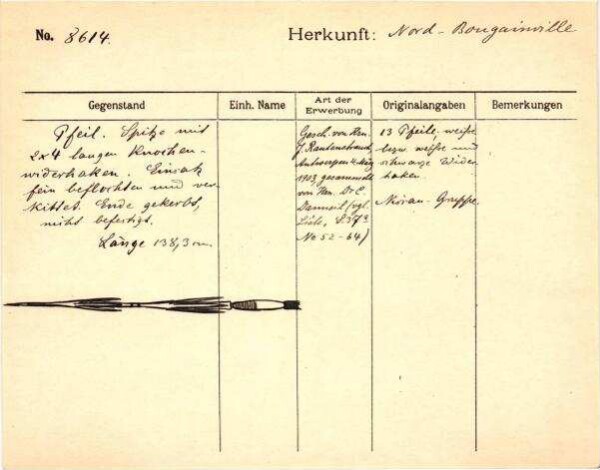 No. 8614. Herkunft: Nord-Bougainville
Gegenstand
Einh. Name
Art der
Erwerbung
Originalangaben
Bemerkungen
Pfeil. Spitze mit
2x4 langen Knochen-
widerhaken. Einsatz
fein beflochten und ver-
kittet. Ende gekerbt,
nicht befestigt.
Länge 138,3 cm.
Gesch. von Hrn.
J. Rautenstrauch,
Antwerpen
1913, gesammelt
von Hrn. Dr.
vgl.
Liste, S. 37
No 52-64)
13 Pfeile, weiße
bezw. weiße und
schwarze Wider-
haken.
Gruppe.